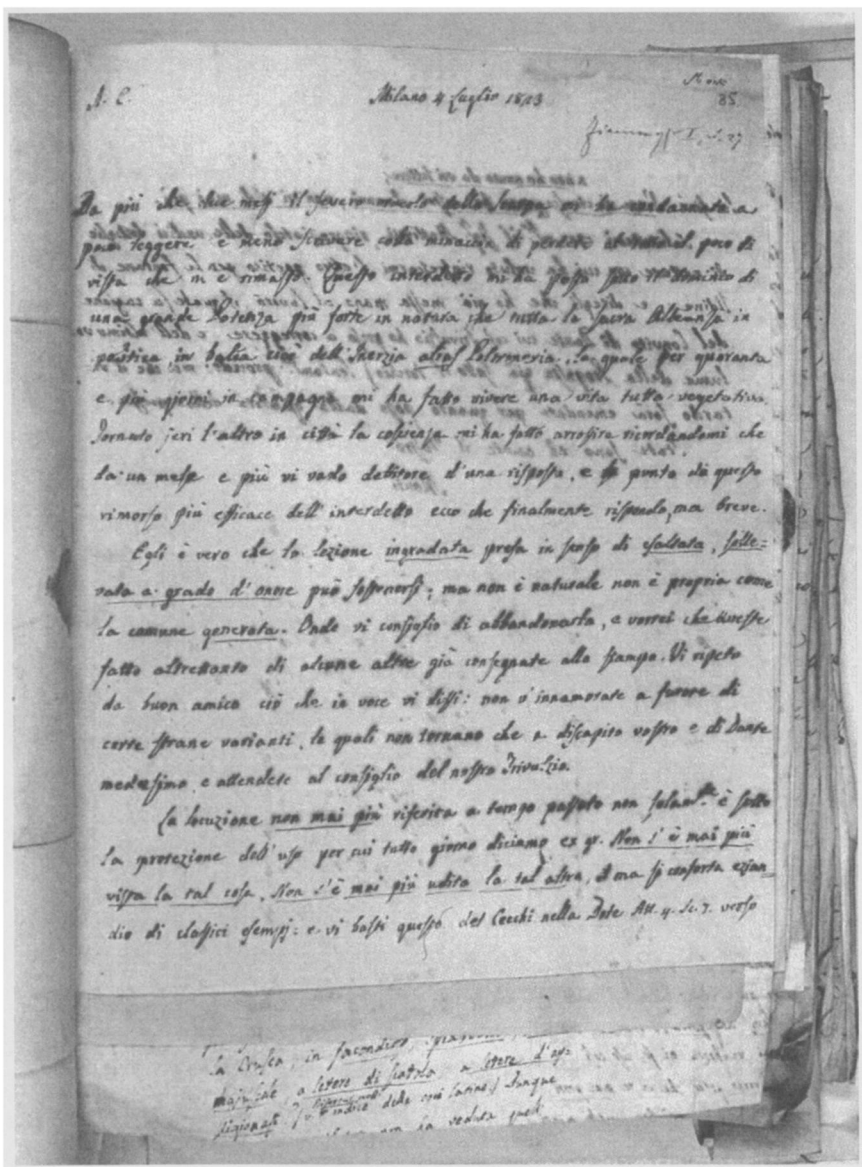 A. C.
Milano 4 Luglio 1823
85
Da più che due mesi il severo della Scarpa mi ha condannato a
poco leggere e meno scrivere colla minaccia di perdere il poco di
vista che m'è rimasto. Questo interdetto mi ha posto sotto il dominio di
una grande Potenza più forte in natura che tutta la sacra Alleanza in
politica in balia cioè dell'Inerzia alias Poltroneria. La quale per quaranta
e più giorni in campagna mi ha fatto vivere una vita tutta vegetativa.
Tornato jeri l'altro in città la coscienza mi ha fatto arrossire ricordandomi che
da un mese e più vi vado debitore d'una risposta, e punto da questo
rimorso più efficace dell'interdetto ecco che finalmente rispondo, ma breve.
Egli è vero che la lezione ingradata presa in senso di esaltata, solle=
vata a grado d'onore può sostenersi; ma non è naturale non è propria come
la comune generata. Onde vi consiglio di abbandonarla, e vorrei che aveste
fatto altrettanto di alcune altre già consegnate alla stampa. Vi ripeto
da buon amico ciò che in voce vi dissi: non v'innamorate a furore di
certe strane varianti, le quali non tornano che a discapito vostro e di Dante
medesimo, e attendete al consiglio del nostro Trivulzio.
La locuzione non mai più riferita a tempo passato non solam.te è sotto
la protezione dell'uso per cui tutto giorno diciamo ex gr. Non s'è mai più
vista la tal cosa, Non s'è mai più udita la tal altra, ma si conforta ezian=
dio di classici esempj: e vi basti questo del Cecchi nella Dote Att. 4. Sc. 7. verso
la Crusca, in facondioso,
majuscole, a lettere di scatola, a lettere d'
indice delle voci latine) Dunque
non ha veduta quel